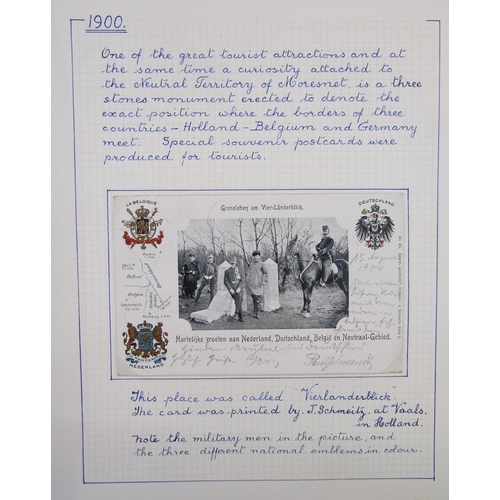 1900.
One of the great tourist attractions and at
the same time a curiosity attached to
the Neutral Territory of Moresnet, is a three
stones monument erected to denote the
exact position where the borders of three
countries – Holland – Belgium and Germany
meet. Special souvenir postcards were
produced for tourists.
LA BELGIQUE
Grensleben am Vier-Länderblick.
DEUTSCHLAND
NEDERLAND
Hartelijke groeten van Nederland, Duitschland, België en Neutraal-Gebied.
This place was called "Vierlanderblick"
The card was printed by J. Schmeitz at Vaals,
in Holland.
Note the military men in the picture, and
the three different national emblems in colour.